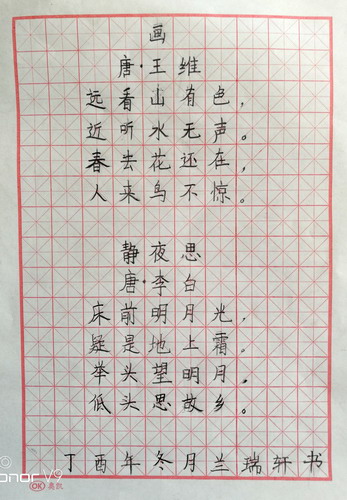 画
唐·王维
远看山有色，
近听水无声。
春去花还在，
人来鸟不惊。
静夜思
唐·李白
床前明月光，
疑是地上霜。
举头望明月，
低头思故乡。
丁酉年冬月兰瑞轩书
onor V9
OK 嘉凯